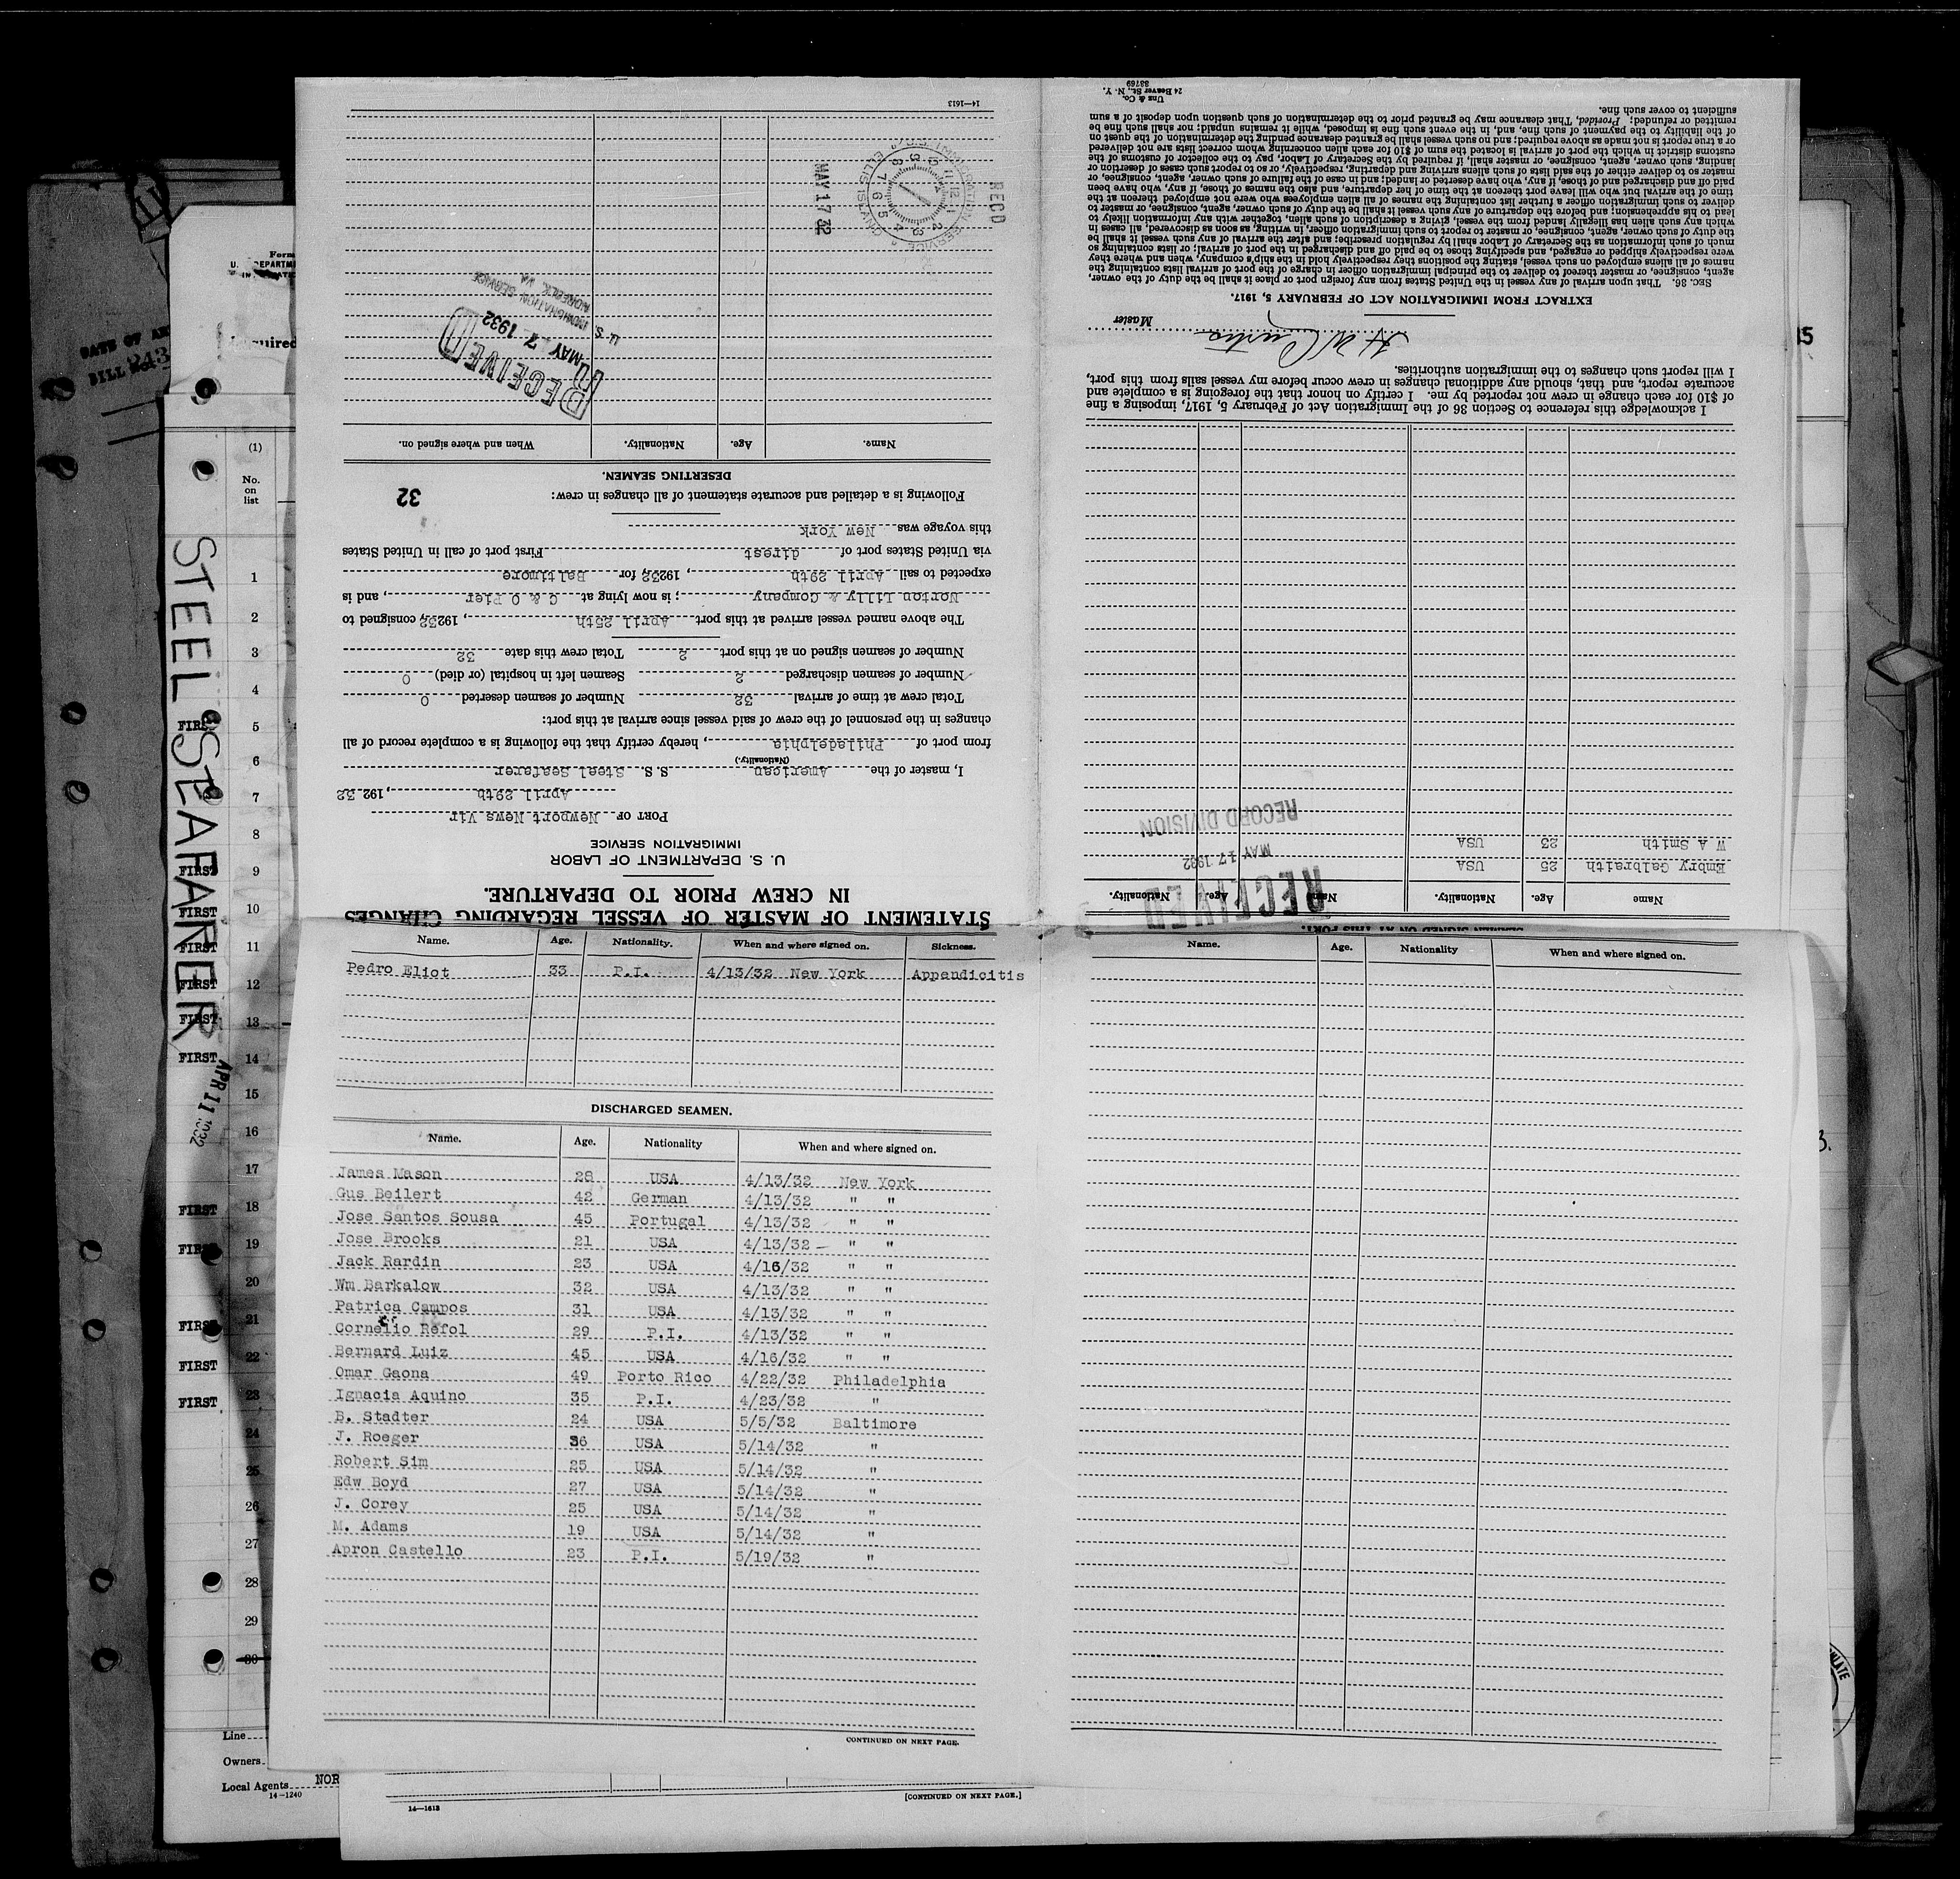 14—1613
STATEMENT OF MASTER OF VESSEL REGARDING CHANGES
IN CREW PRIOR TO DEPARTURE.
U. S. DEPARTMENT OF LABOR
IMMIGRATION SERVICE
PORT OF Newport News Vir
April 29th, 192 32
I, master of the American S. S. Steel Seafarer
(Nationality.)
from port of Philadelphia, hereby certify that the following is a complete record of all
changes in the personnel of the crew of said vessel since arrival at this port:
Total crew at time of arrival 32 Number of seamen deserted 0
Number of seamen discharged 2 Seamen left in hospital (or died) 0
Number of seamen signed on at this port 2 Total crew this date 32
The above named vessel arrived at this port April 25th, 19232 consigned to
Norton Lilly & Company; is now lying at C & O Pier, and is
expected to sail April 29th, 19232, for Baltimore
via United States port of direst First port of call in United States
this voyage was New York
Following is a detailed and accurate statement of all changes in crew: 32
DESERTING SEAMEN.
Name. Age. Nationality. When and where signed on.
RECEIVED
MAY 7 1932
U. S. IMMIGRATION SERVICE
NORFOLK, VA
REC'D
MAY 17 32
SEAMEN SIGNED ON AT THIS PORT.
Name Age. Nationality. Name Age. Nationality.
Embry Galbraith 25 USA
W A Smith 23 USA
RECEIVED
MAY 17 1932
RECORD DIVISION
I acknowledge this reference to Section 36 of the Immigration Act of February 5, 1917, imposing a fine
of $10 for each change in crew not reported by me. I certify on honor that the foregoing is a complete and
accurate report, and that, should any additional changes in crew occur before my vessel sails from this port,
I will report such changes to the immigration authorities.
Master
EXTRACT FROM IMMIGRATION ACT OF FEBRUARY 5, 1917.
SEC. 36. That upon arrival of any vessel in the United States from any foreign port or place it shall be the duty of the owner,
agent, consignee, or master thereof to deliver to the principal immigration officer in charge of the port of arrival lists containing the
names of all aliens employed on such vessel, stating the positions they respectively hold in the ship's company, when and where they
were respectively shipped or engaged, and specifying those to be paid off and discharged in the port of arrival; or lists containing so
much of such information as the Secretary of Labor shall by regulation prescribe; and after the arrival of any such vessel it shall be
the duty of such owner, agent, consignee, or master to report to such immigration officer, in writing, as soon as discovered, all cases in
which any such alien has illegally landed from the vessel, giving a description of such alien, together with any information likely to
lead to his apprehension; and before the departure of any such vessel it shall be the duty of such owner, agent, consignee, or master to
deliver to such immigration officer a further list containing the names of all alien employees who were not employed thereon at the
time of the arrival but who will leave port thereon at the time of her departure, and also the names of those, if any, who have been
paid off and discharged and of those, if any, who have deserted or landed; and in case of the failure of such owner, agent, consignee, or
master so to deliver either of the said lists of such aliens arriving and departing, respectively, or so to report such cases of desertion or
landing, such owner, agent, consignee, or master shall, if required by the Secretary of Labor, pay to the collector of customs of the
customs district in which the port of arrival is located the sum of $10 for each alien concerning whom correct lists are not delivered
or a true report is not made as above required; and no such vessel shall be granted clearance pending the determination of the question
of the liability to the payment of such fine, and, in the event such fine is imposed, while it remains unpaid; nor shall such fine be
remitted or refunded: Provided, That clearance may be granted prior to the determination of such question upon deposit of a sum
sufficient to cover such fine.
Unz & Co.
24 Beaver St., N. Y.
33769
Name. Age. Nationality. When and where signed on. Sickness.
Pedro Eliot 33 P.I. 4/13/32 New York Appandicitis
DISCHARGED SEAMEN.
Name. Age. Nationality When and where signed on.
James Mason 28 USA 4/13/32 New York
Gus Beilert 42 German 4/13/32 " "
Jose Santos Sousa 45 Portugal 4/13/32 " "
Jose Brooks 21 USA 4/13/32 " "
Jack Rardin 23 USA 4/16/32 " "
Wm Barkalow 32 USA 4/13/32 " "
Patrica Campos 31 USA 4/13/32 " "
Cornelio Refol 29 P.I. 4/13/32 " "
Bernard Luiz 45 USA 4/16/32 " "
Omar Gaona 49 Porto Rico 4/22/32 Philadelphia
Ignacia Aquino 35 P.I. 4/23/32 "
B. Stadter 24 USA 5/5/32 Baltimore
J. Roeger 36 USA 5/14/32 "
Robert Sim 25 USA 5/14/32 "
Edw Boyd 27 USA 5/14/32 "
J. Corey 25 USA 5/14/32 "
M. Adams 19 USA 5/14/32 "
Apron Castello 23 P.I. 5/19/32 "
CONTINUED ON NEXT PAGE.
Name. Age. Nationality When and where signed on.
14—1613
[CONTINUED ON NEXT PAGE.]
STEEL SEAFARER
APR 11 1932
BILL
(1)
No.
on
list
1
2
3
4
FIRST 5
6
7
8
FIRST 9
FIRST 10
FIRST 11
FIRST 12
FIRST 13
FIRST 14
15
16
17
FIRST 18
FIRST 19
20
FIRST 21
FIRST 22
FIRST 23
24
25
26
27
28
29
30
Line
Owners
Local Agents NOR
14-1240